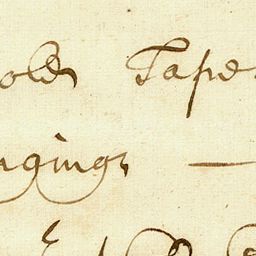 old Tape
ngings —